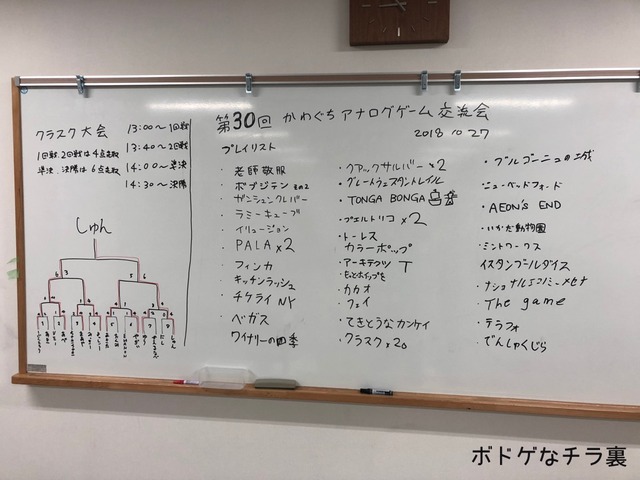 第30回 かわぐちアナログゲーム交流会
2018 10 27
クラスク大会
13:00〜1回戦
1回戦、2回戦は4点先取
13:40〜2回戦
準決、決勝は6点先取
14:00〜準決
14:30〜決勝
しゅん
プレイリスト
・老師敬服
・ボブジテン その2
・ガンシュンクレバー
・ラミーキューブ
・イリュージョン
・PALA×2
・フィンカ
・キッチンラッシュ
・チケライ NY
・ベガス
ワイナリーの四季
・クアックサルバー×2
・グレートウェスタントレイル
・TONGA BONGA
・プエルトリコ×2
・トーレス
カラーポップ
・アーキテクツ T
・もっとホイップを
・カカオ
・フェイ
・てきとうなカンケイ
・クラスク×20
・ブルゴーニュの城
・ニューベッドフォード
・AEON'S END
・いかだ動物園
・ミントワークス
イスタンブールダイス
・ナショナルエコノミーメセナ
・The game
・テラフォ
・でんしゃくじら
ボドゲなチラ裏